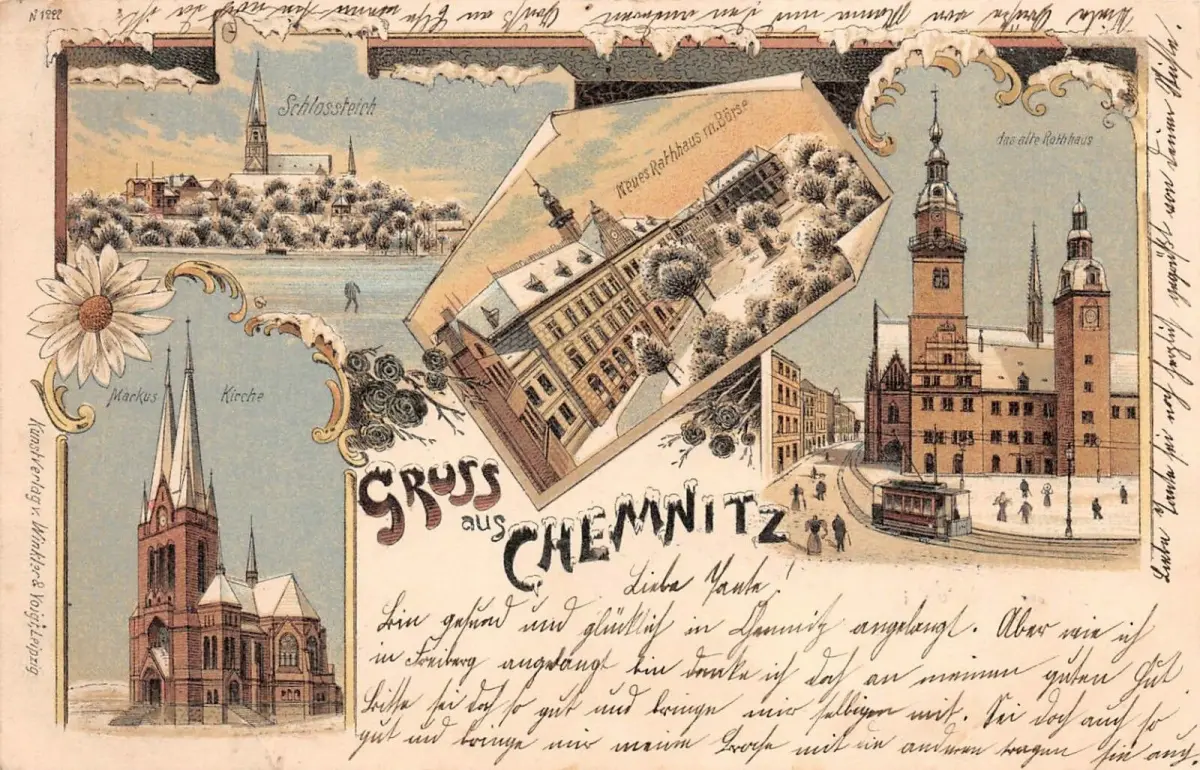 N 1222
Schlossteich
Neues Rathhaus m. Börse
das alte Rathhaus
Markus Kirche
Kunstverlag v. Winkler & Voigt, Leipzig
GRUSS
aus
CHEMNITZ
Liebe Tante!
Bin gesund und glücklich in Chemnitz angelangt. Aber wie ich
in Freiberg angelangt bin denke ich doch an meinen guten Hut
Bitte sei doch so gut und bringe mir selbigen mit. Sei doch auch so
gut und bringe mir meine mit die anderen tragen sie auch.
Viele Grüße von Mama und den anderen
Gruß an Else